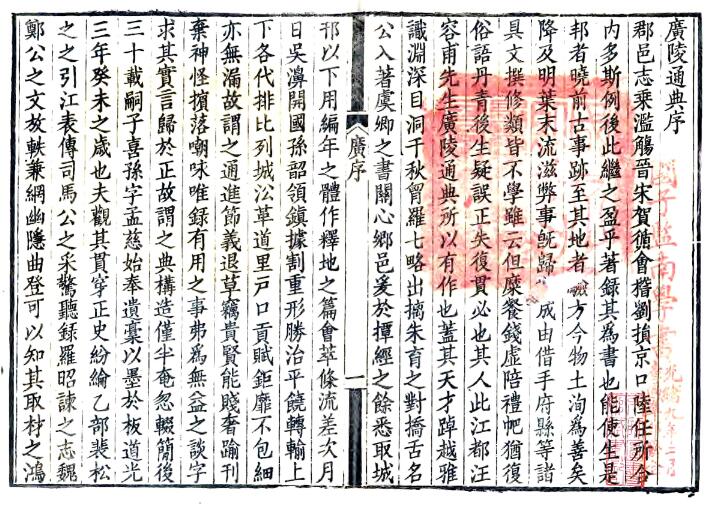 廣陵通典序
郡邑志乘濫觴晉宋賀循會稽劉損京口陸任所合
内多斯例後此繼之盈乎著錄其為書也能使生是
邦者曉前古事跡至其地者
方今物土洵為善矣
降及明葉末流滋弊事旣歸
成由借手府縣等諸
具文撰修類皆不學雖云但糜餐錢虛陪禮帊猶復
俗語丹青後生疑誤正失復貫必也其人此江都汪
容甫先生廣陵通典所以有作也蓋其天才踔越雅
識淵深目洞千秋胷羅七略出摛朱育之對撟舌名
公入著虞卿之書關心鄉邑爰於撢經之餘悉取城
廣序
一
邗以下用編年之體作釋地之篇會萃條流差次月
日吳濞開國孫韶領鎭據割重形勝治平饒轉輸上
下各代排比列城㳂草道里戸口貢賦鉅靡不包細
亦無漏故謂之通進節義退草竊貴賢能賤奢踰刊
棄神怪擯落嘲咏唯錄有用之事弗為無益之談字
求其實言歸於正故謂之典構造僅半奄忽輟簡後
三十載嗣子喜孫字孟慈始奉遺稾以墨於板道光
三年癸未之歳也夫觀其貫穿正史紛綸乙部裴松
之之引江表傳司馬公之采驚聽錄羅昭諫之志魏
鄭公之文放軼兼網幽隱曲登可以知其取材之鴻
國子監南學
光緒九年二月